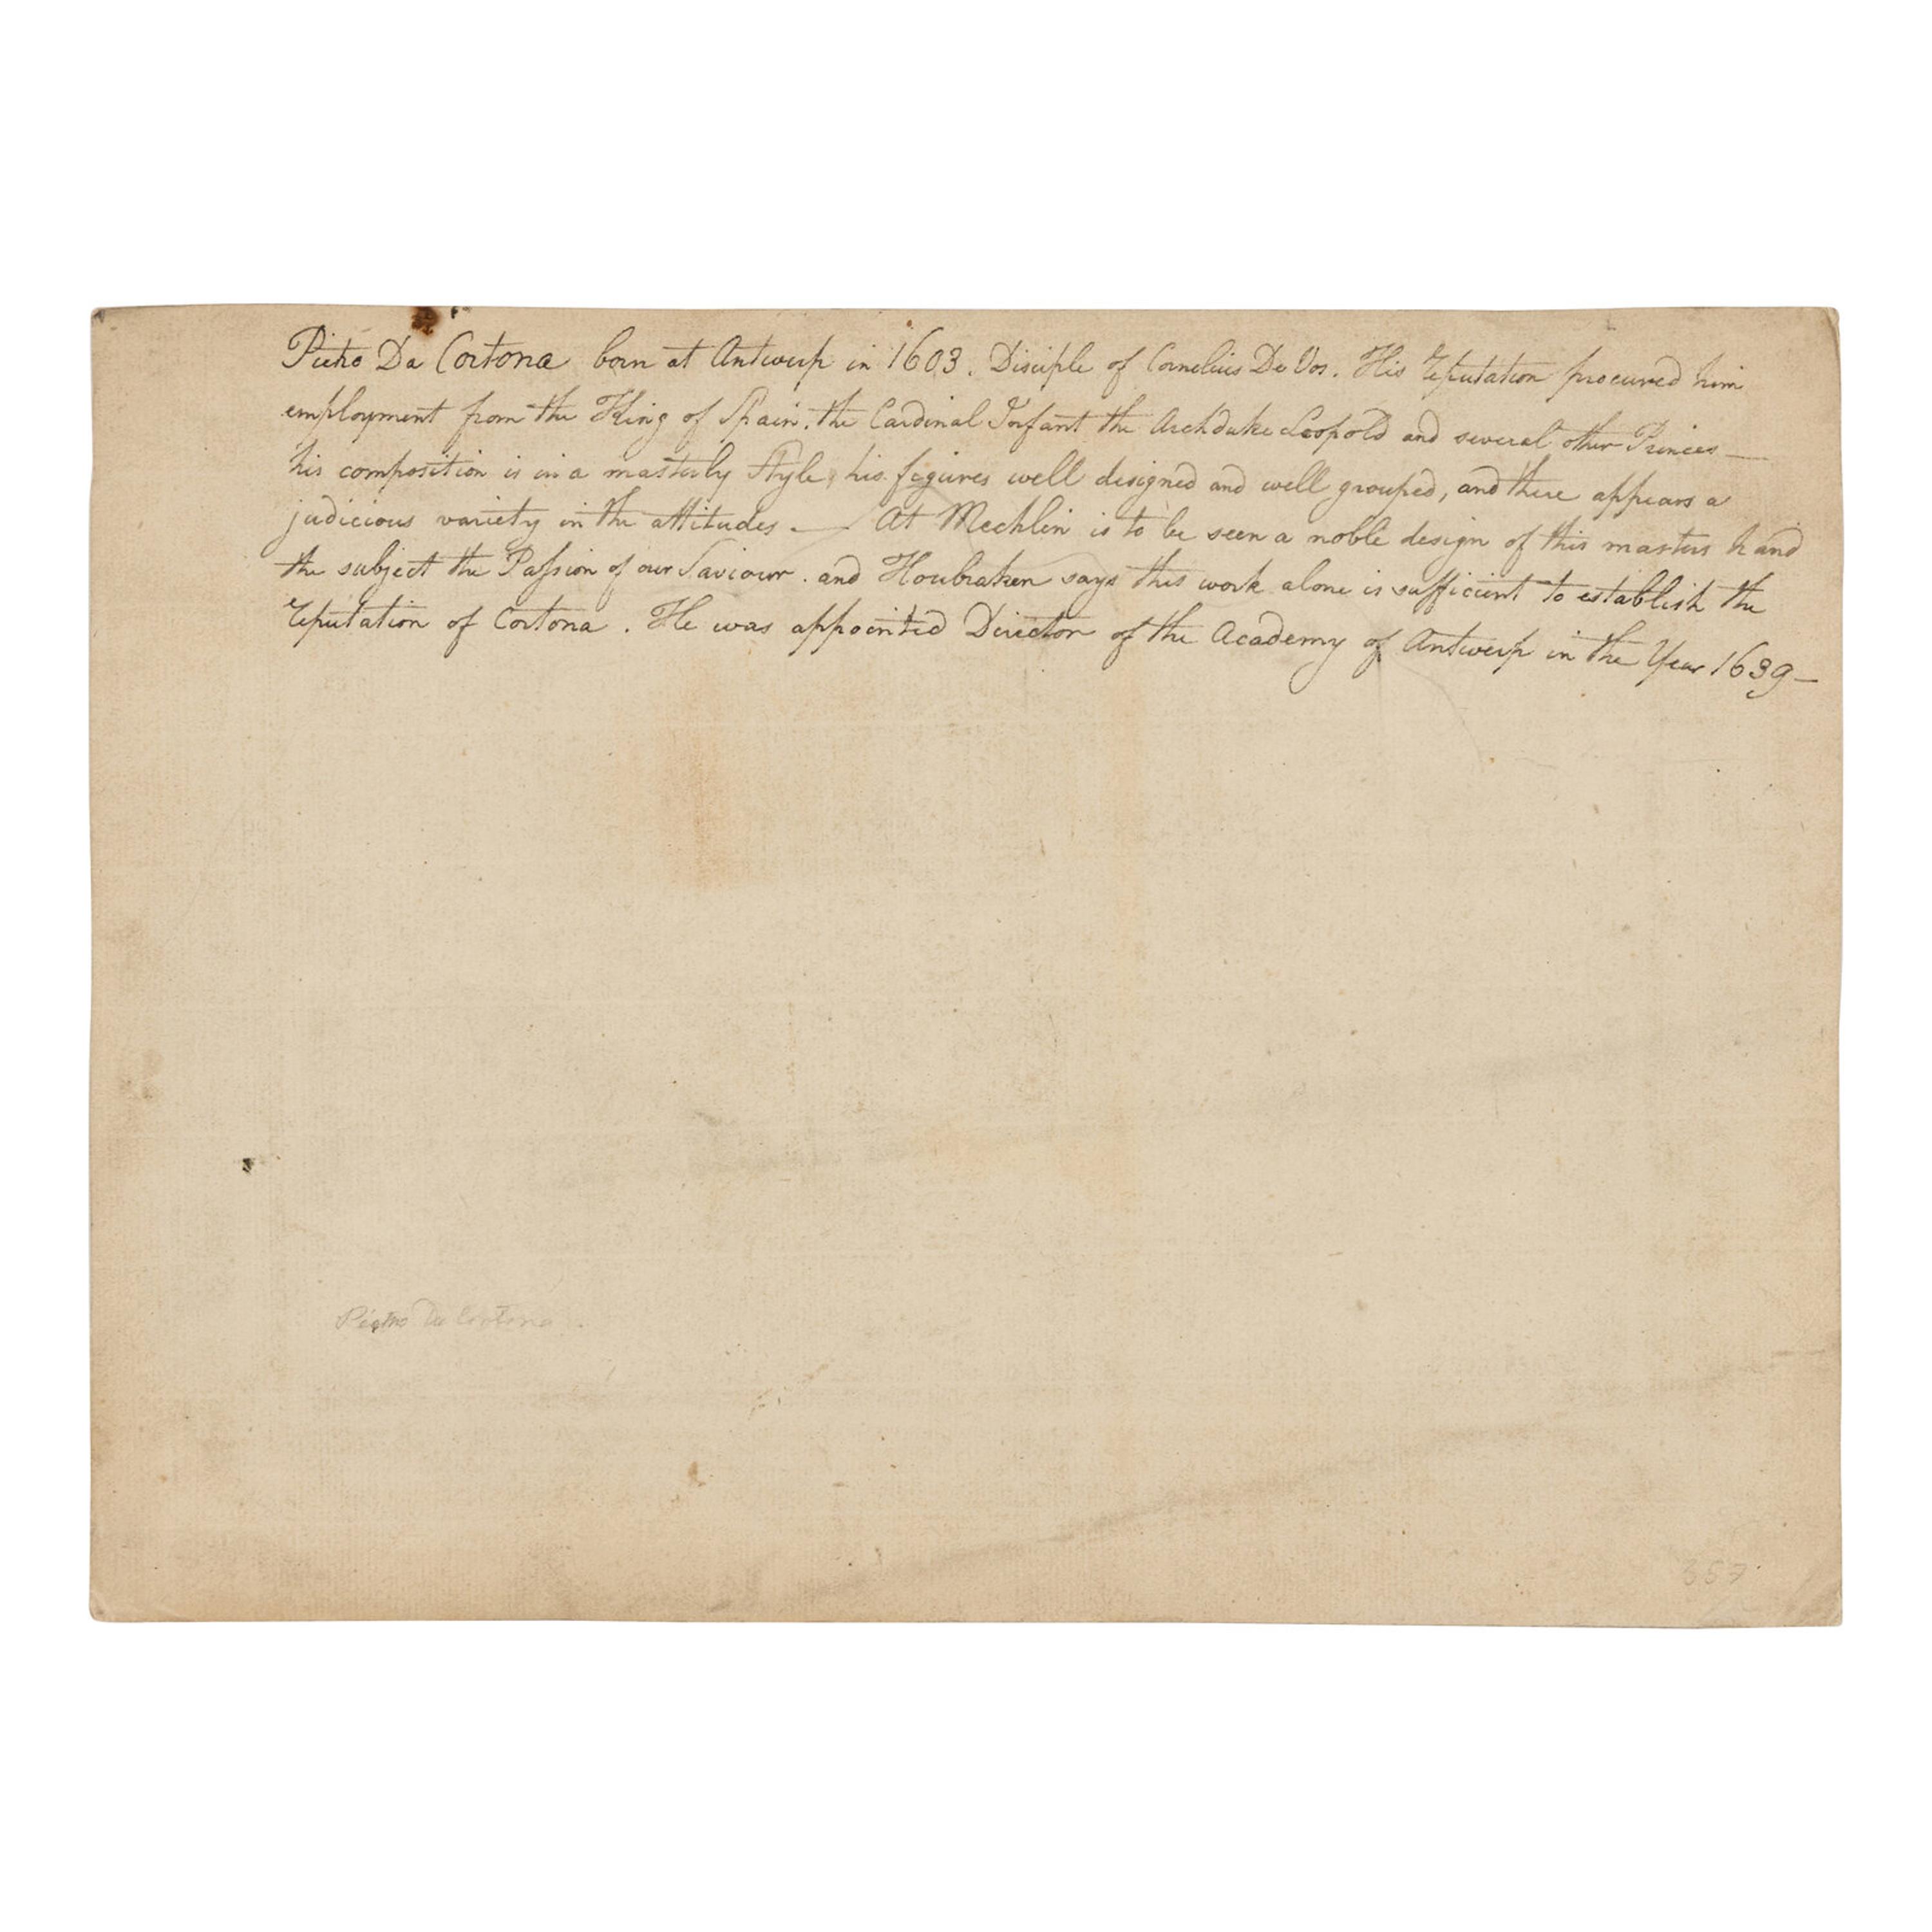 Pietro Da Cortona born at Antwerp in 1603. Disciple of Cornelius De Vos. His reputation procured him
employment from the King of Spain. the Cardinal Infant the Archduke Leopold and several other Princes —
his composition is in a masterly Style, his figures well designed and well grouped, and there appears a
judicious variety in the attitudes. — At Mechlin is to be seen a noble design of this masters hand
the subject the Passion of our Saviour. and Houbraken says this work alone is sufficient to establish the
reputation of Cortona. He was appointed Director of the Academy of Antwerp in the Year 1639 —
Pietro Da Cortona.
357